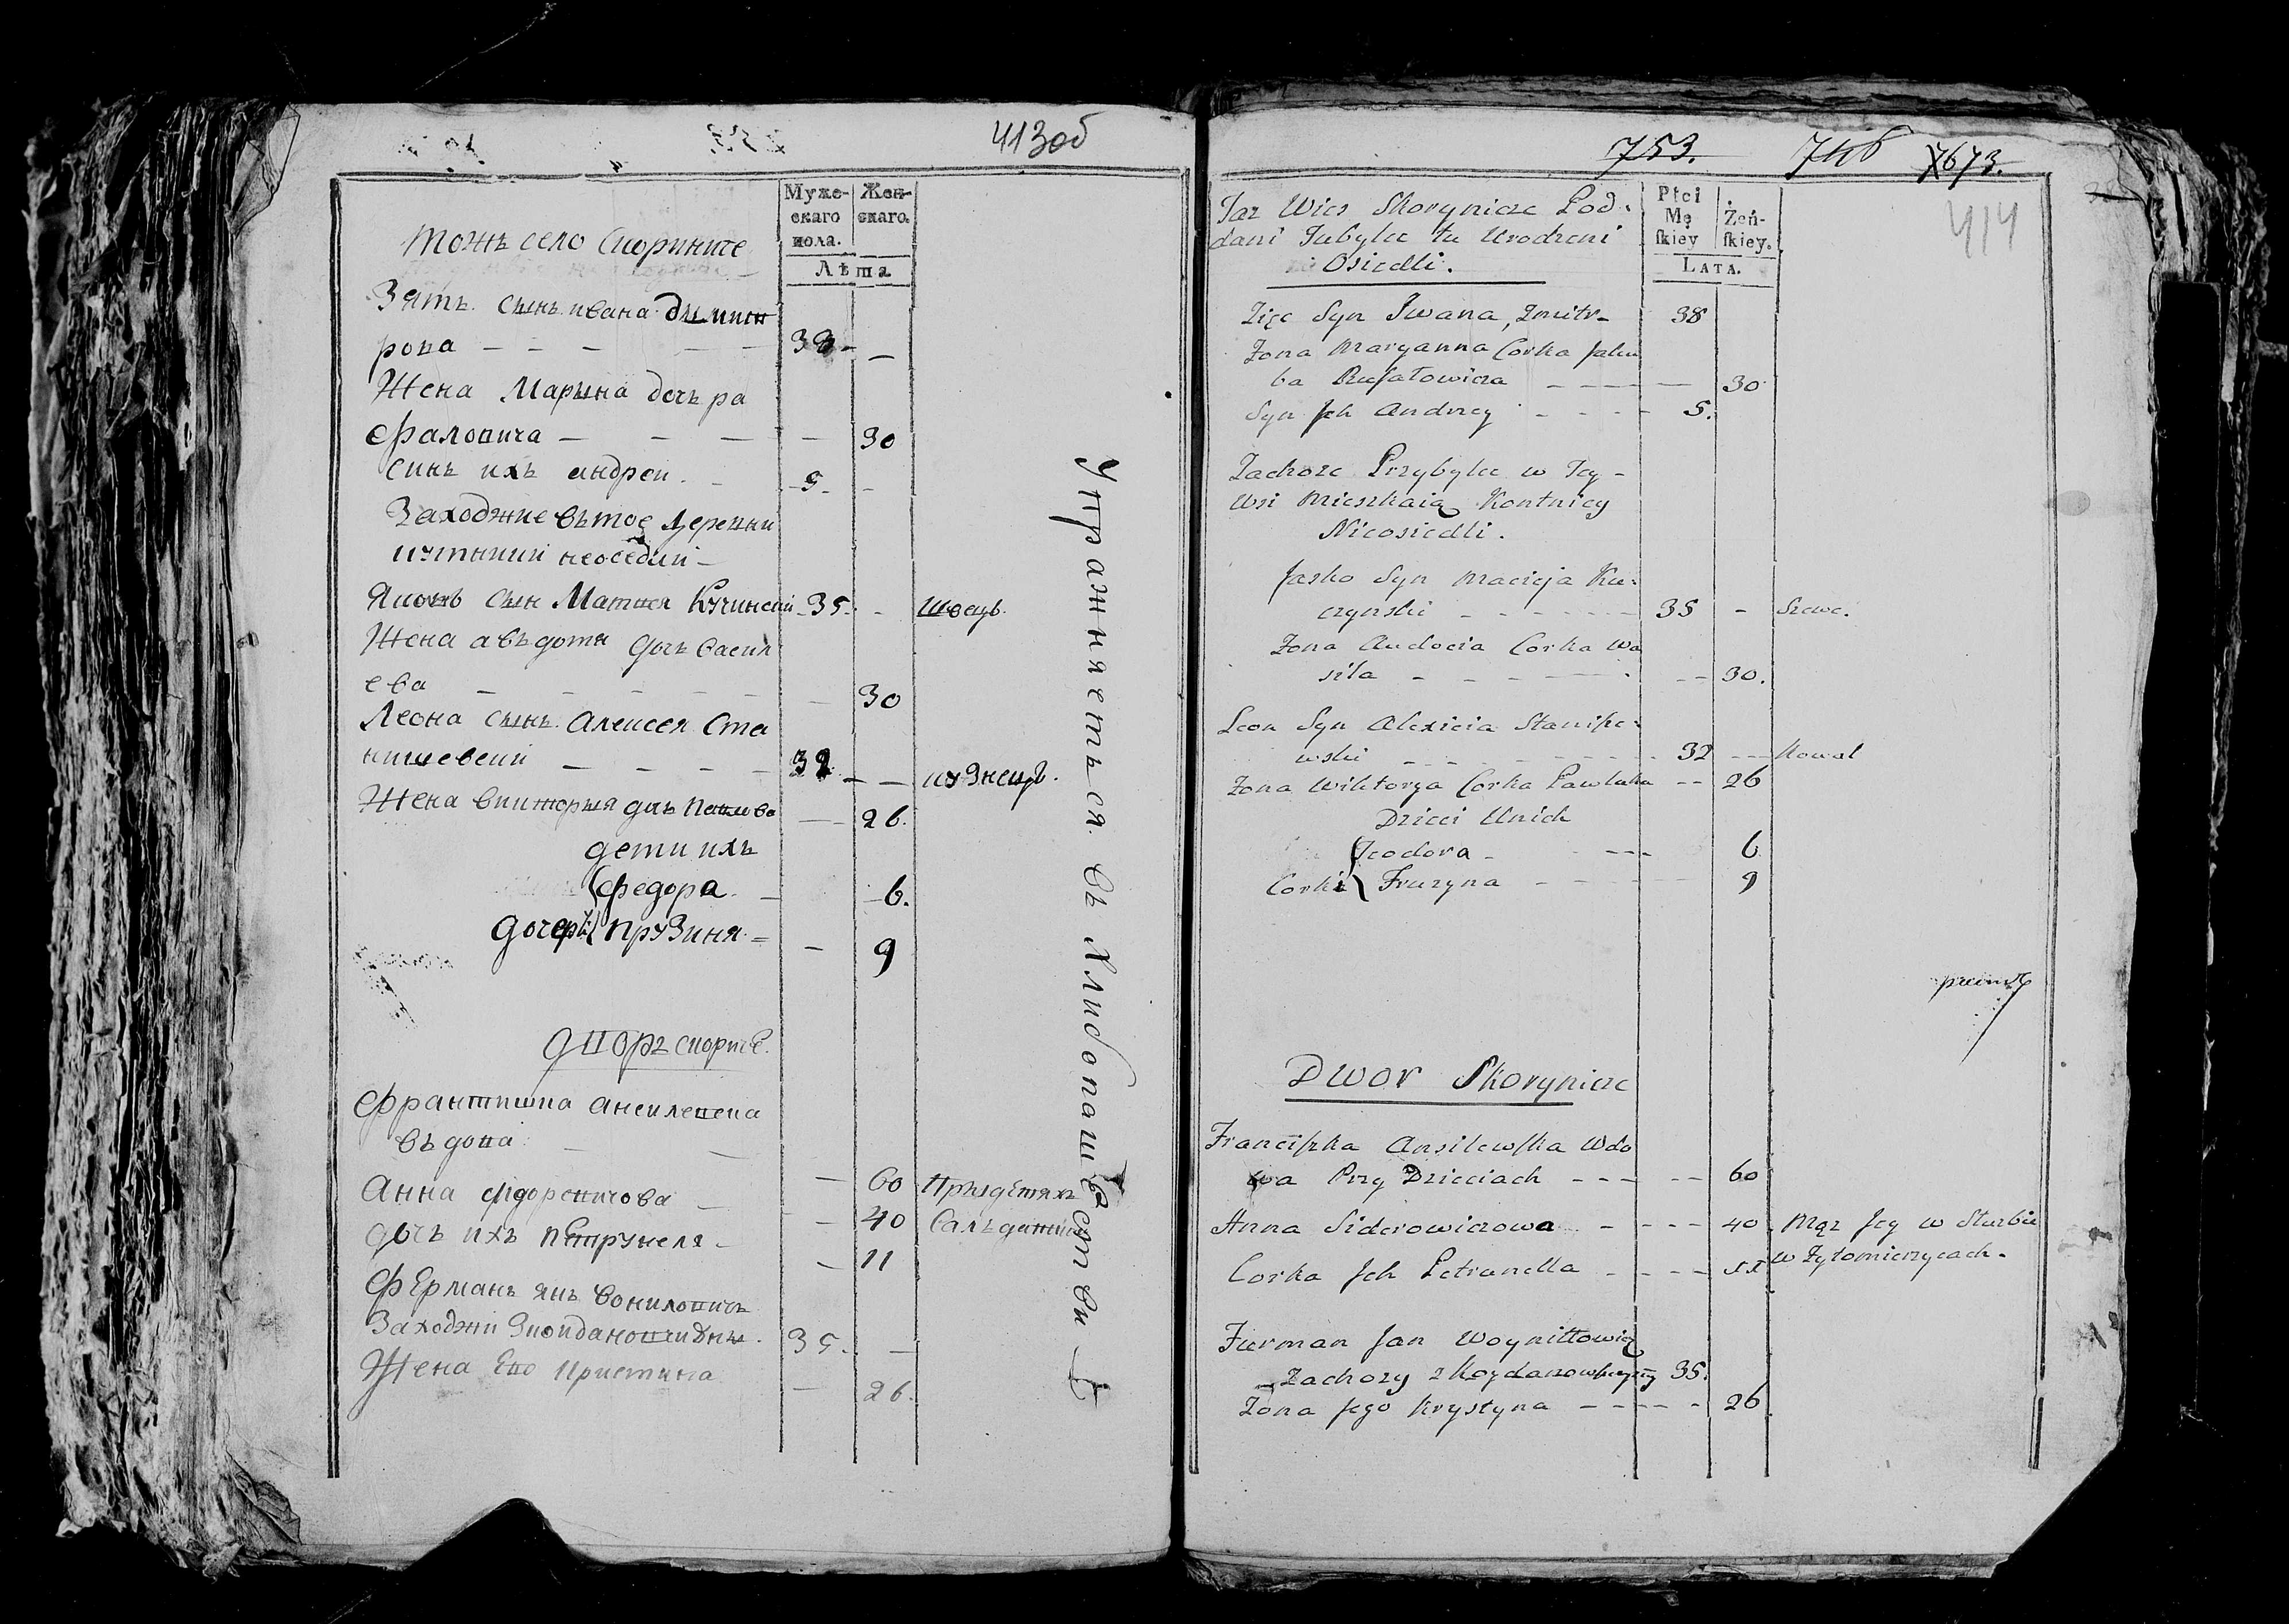 413об
Муже-
скаго
пола.
Жен-
скаго.
Лѣта
тожъ село Скориниче
Зять сынъ ивана дымит
рока 38
Жена Марына дочъ ра
фаловича 30
синъ ихъ андрей 5
Заходжие вътое деревни
кутники неоседли
Яковъ сын Матися Кучински 35 швецъ
Жена авъдотя дочъ васил
ева 30
Леона сынъ Алексея Ста
нишевски 32 кузнецъ
Жена викторыя дчъ павлова 26
дети ихъ
федора 6
дочери прузиня 9
дворъ скориче
франтишка ансилевска
въдова 60 прыдетяхъ
Анна сидоровичова 40 салъдатка
дочъ ихъ петрунеля 11
фЕрманъ янъ вониловичъ
Заходжи Зкойдановщидны 35
Жена Его кристина 26
Упражняетъся въ хлибопашѣствѣ
753. 746 7673.
414
Płci
Mę
ſkiey
Żeń-
ſkiey.
LATA.
Taz Wies Skorynicze Pod-
dani Tubylce tu Urodzeni
i Osiedli.
Zięc Syn Iwana, Zmitr- 38
Zona Maryanna Corka Jaku
ba Rafałowicza 30
Syn Jch Andrzey 5.
Zachoze Przybylce w Tey-
Wsi Mieszkaią Kontnicy
Nieosiedli.
Jasko Syn Macieja Ku-
czynski 35 - Szewc.
Zona Audocia Corka Wa
sila 30.
Leon Syn Alexieia Staniſze-
wski 32 Kowal
Zona Wiktorya Corka Pawluka 26
Dzieci Unich
Teodora 6
Corki Fruzyna 9
Dwor Skorynicze
Franciſzka Ansilewſka Wdo
wa Przy Dzieciach 60
Anna Siderowiczowa 40 Mąz Jey w Słuzbie
w Zytomierzycach.
Corka Jch Petranella 11
Furman Jan Woyniłłowicz
Zachozy z Koydanowszczyzny 35.
Zona Jego Krystyna 26